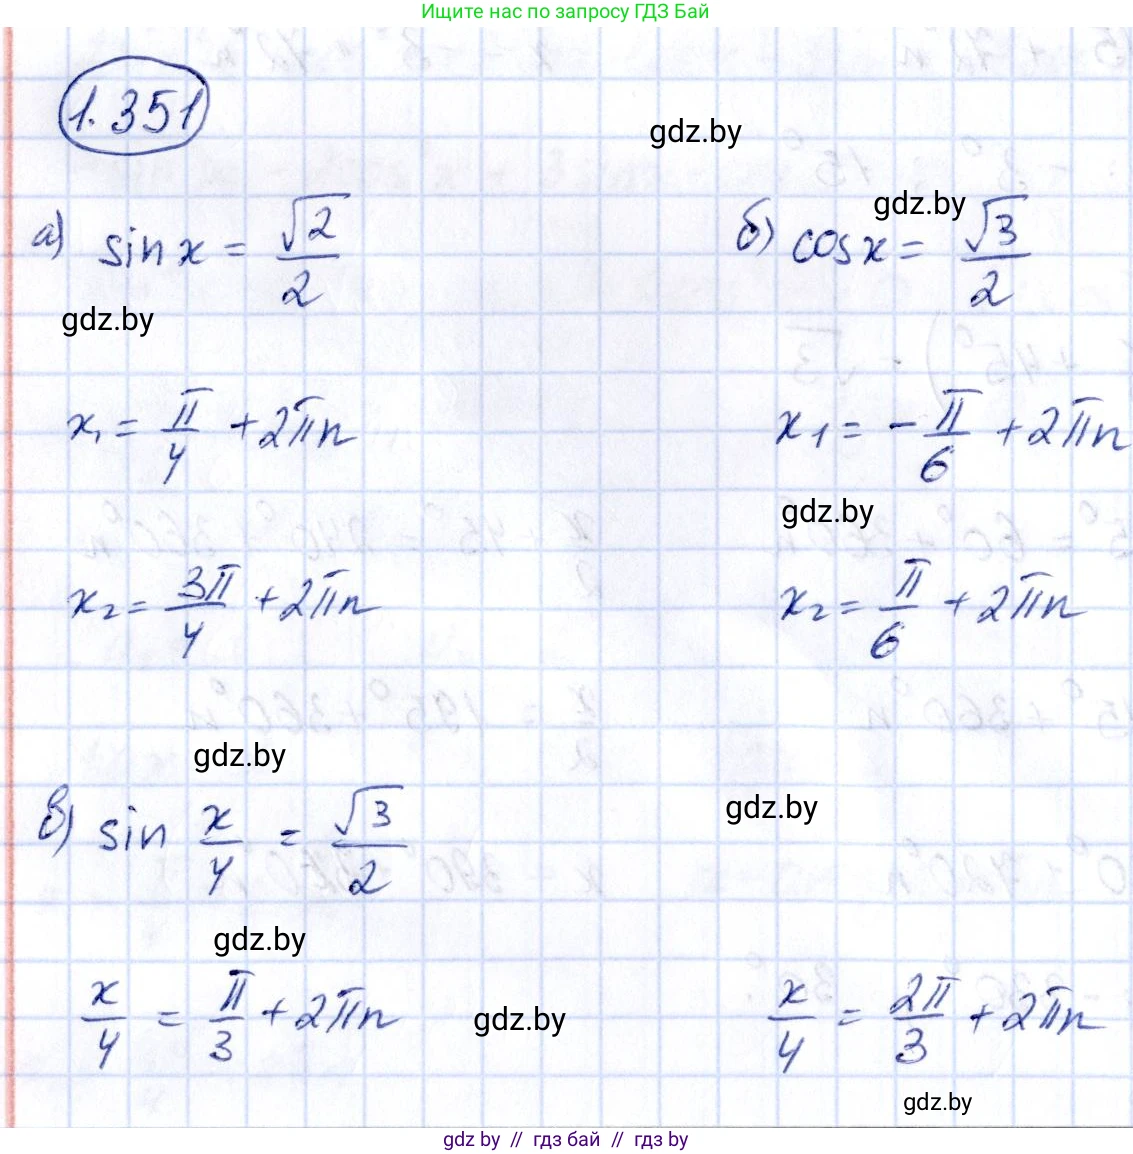 Ищите нас по запросу ГДЗ Бай
1.351
gdz.by
а) sin x = √2/2
б) cos x = √3/2
gdz.by
gdz.by
x₁ = π/4 + 2πn
x₁ = -π/6 + 2πn
gdz.by
x₂ = 3π/4 + 2πn
x₂ = π/6 + 2πn
gdz.by
gdz.by
в) sin x/4 = √3/2
gdz.by
x/4 = π/3 + 2πn
gdz.by
x/4 = 2π/3 + 2πn
gdz.by
gdz by // гдз бай // gdz by